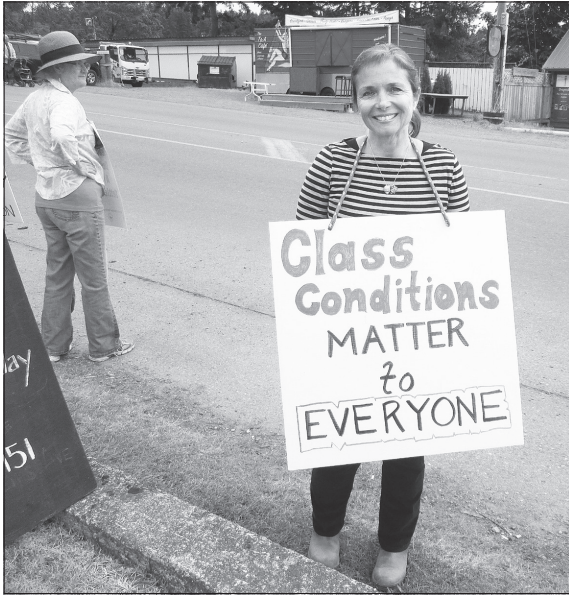 Class
Conditions
MATTER
to
EVERYONE
ay
151
ON